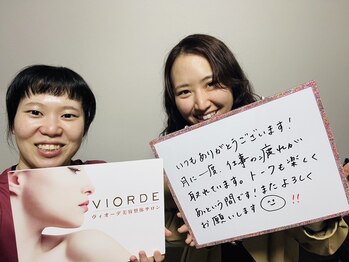 VIORDE
ヴィオーデ美容整体サロン
いつもありがとうございます!
月に一度、仕事の疲れが
取れています。トークも楽しく
あっという間です!またよろしく
お願いします!!